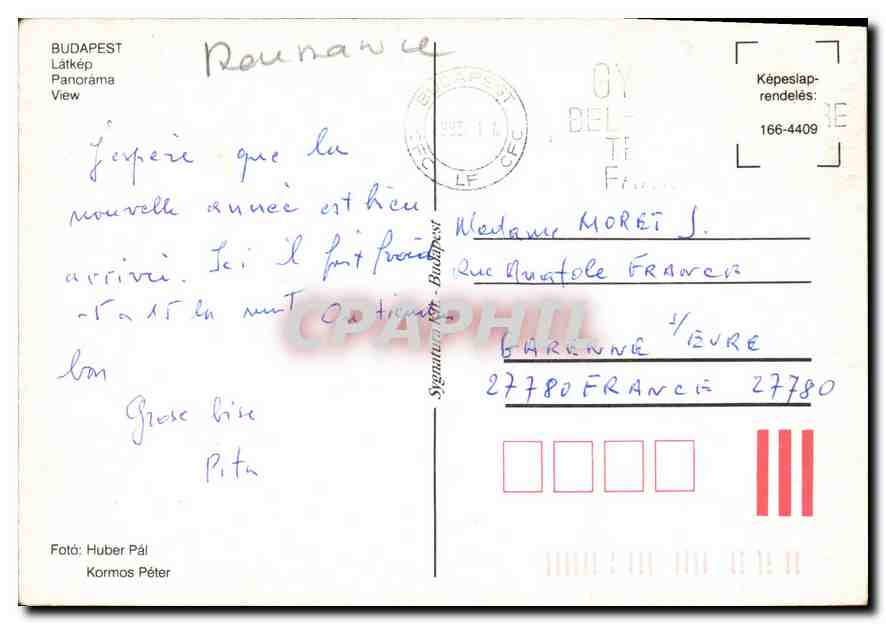 BUDAPEST
Látkép
Panoráma
View
Roumanie
BUDAPEST
CFC LF CFC
GY
BEL-
TE
Képeslap-
rendelés:
166-4409
J'espère que la
nouvelle année est bien
arrivée. Ici il fait froid
-5 a 15 la nuit On tient
bon
Grose bise
Pita
Sygnatura Kft. - Budapest
Madame MORET J.
Rue Anatole FRANCE
GARENNE s/EVRE
27780 FRANCE 27780
CPAPHIL
Fotó: Huber Pál
Kormos Péter